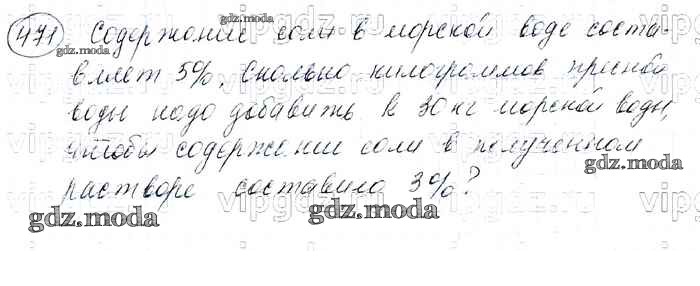 471 Содержание соли в морской воде соста-
вляет 5%. Сколько килограммов пресной
воды надо добавить к 30 кг морской воды,
чтобы содержание соли в полученном
растворе составило 3%?
gdz.moda
gdz.moda
gdz.moda
gdz.moda
gdz.moda